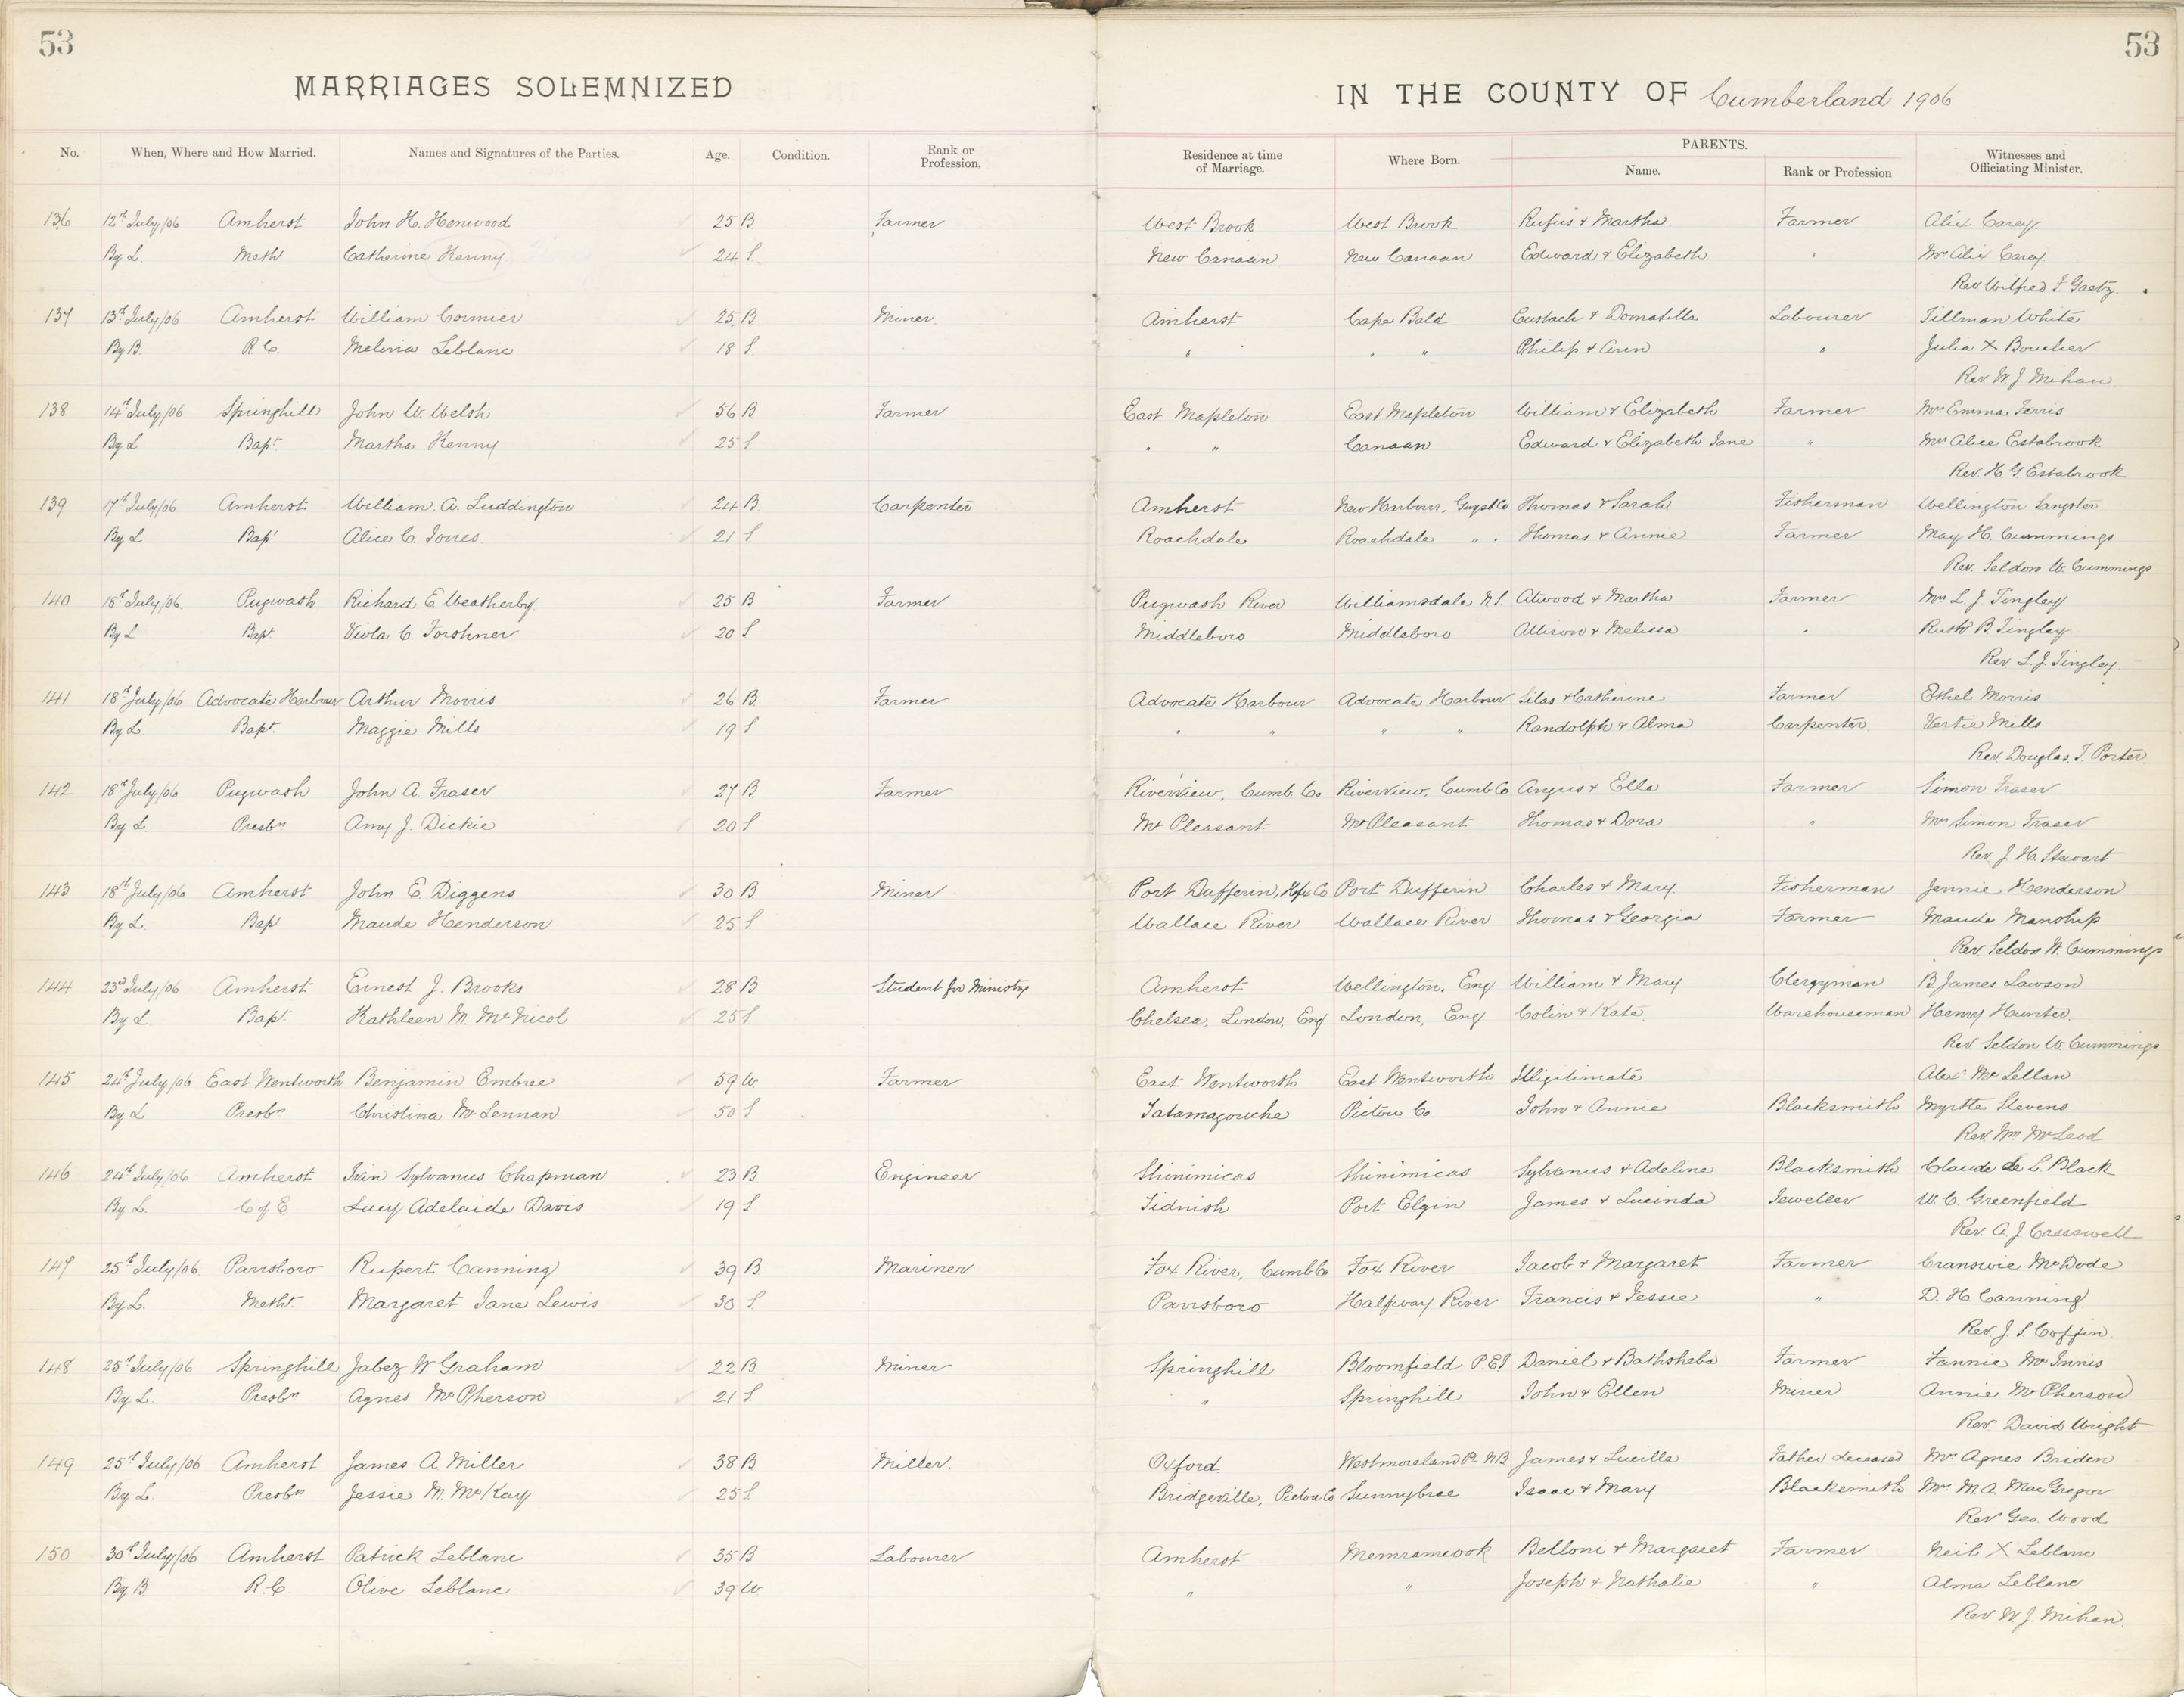 53
53
MARRIAGES SOLEMNIZED
IN THE COUNTY OF Cumberland 1906
No. When, Where and How Married. Names and Signatures of the Parties. Age. Condition. Rank or Profession. Residence at time of Marriage. Where Born. PARENTS. Name. Rank or Profession Witnesses and Officiating Minister.
136 12th July/06 Amherst John H. Henwood 25 B Farmer West Brook West Brook Rufus & Martha Farmer Alex Carey
By L. Meth Catherine Kenny 24 S. New Canaan New Canaan Edward & Elizabeth " Mrs Alex Carey
Rev Wilfred F. Gaetz.
137 13th July/06 Amherst William Cormier 25 B Miner Amherst Cape Bald Eustach & Domatille Labourer Tillman White
By B. R.C. Melina Leblanc 18 S " " " Philip & Ann " Julia X Boucher
Rev. W. J. Mihan
138 14th July/06 Springhill John W. Welsh 56 B Farmer East Mapleton East Mapleton William & Elizabeth Farmer Mrs Emma Ferris
By L Bapt Martha Kenny 25 S " " Canaan Edward & Elizabeth Jane " Mrs Alice Estabrook
Rev. H. G. Estabrook
139 17th July/06 Amherst William A. Luddington 24 B Carpenter Amherst New Harbour, Guys Co Thomas & Sarah Fisherman Wellington Sangster
By L Bapt Alice C. Jones 21 S. Roachdale Roachdale " " Thomas & Annie Farmer May H. Cummings
Rev. Seldon W. Cummings
140 18th July/06 Pugwash Richard E. Weatherby 25 B Farmer Pugwash River Williamsdale N.S. Atwood & Martha Farmer Mrs L. J. Tingley
By L Bapt Viola C. Forshner 20 S Middleboro Middleboro Allison & Melissa " Ruth B. Tingley
Rev L. J. Tingley
141 18th July/06 Advocate Harbour Arthur Morris 26 B Farmer Advocate Harbour Advocate Harbour Silas & Catherine Farmer Ethel Morris
By L. Bapt. Maggie Mills 19 S " " " " Randolph & Alma Carpenter Vertie Mills
Rev. Douglas. J. Porter
142 18th July/06 Pugwash John A. Fraser 27 B. Farmer Riverview, Cumb. Co. Riverview, Cumb Co Angus & Ella Farmer Simon Fraser
By L Presbn Amy J. Dickie 20 S Mt Pleasant Mt Pleasant Thomas & Dora " Mrs Simon Fraser
Rev. J. H. Stewart
143 18th July/06 Amherst John E. Diggens 30 B Miner Port Dufferin, Hfx Co Port Dufferin Charles & Mary Fisherman Jennie Henderson
By L Bap Maude Henderson 25 S Wallace River Wallace River Thomas & Georgia Farmer Maude Manship
Rev. Seldon W. Cummings
144 23rd July/06 Amherst Ernest J. Brooks 28 B Student for Ministry Amherst Wellington, Eng William & Mary Clergyman B. James Lawson
By L. Bapt. Kathleen M. McNicol 25 S Chelsea, London, Eng London, Eng Colin & Kate Warehouseman Henry Hunter
Rev. Seldon W. Cummings
145 24th July/06 East Wentworth Benjamin Embree 59 W. Farmer East Wentworth East Wentworth Illigitimate Alex. McLellan
By L Presbn Christina McLennan 50 S Tatamagouche Pictou Co John & Annie Blacksmith Myrtle Stevens
Rev. Wm McLeod
146 24th July/06 Amherst Ivan Sylvanus Chapman 23 B. Engineer Shinimicas Shinimicas Sylvanus & Adeline Blacksmith Claude de L. Black
By L. C of E Lucy Adelaide Davis 19 S Tidnish Port Elgin James & Lucinda Jeweller W. C. Greenfield
Rev. A. J. Cresswell
147 25th July/06 Parrsboro Rupert Canning 39 B Mariner Fox River, Cumb Co Fox River Jacob & Margaret Farmer McDade
By L. Metht. Margaret Jane Lewis 30 S. Parrsboro Halfway River Francis & Jessie " D. H. Canning
Rev J. S. Coffin
148 25th July/06 Springhill Jabez W. Graham 22 B Miner Springhill Bloomfield P.E.I Daniel & Bathsheba Farmer Fannie McInnis
By L. Presbn Agnes McPherson 21 S. " Springhill John & Ellen Miner Annie McPherson
Rev. David Wright
149 25th July/06 Amherst James A. Miller 38 B Miller. Oxford Westmoreland Pt NB James & Lucilla Father deceased Mrs Agnes Briden
By L. Presbn Jessie M. McKay 25 S. Bridgeville, Pictou Co Sunnybrae Isaac & Mary Blacksmith Mrs M. A. MacGregor
Rev Geo. Wood
150 30th July/06 Amherst Patrick Leblanc 35 B Labourer Amherst Memramcook Belloni & Margaret Farmer Neil X Leblanc
By B R.C. Olive Leblanc 39 W. " " Joseph & Nathalie " Alma Leblanc
Rev W. J. Mihan.